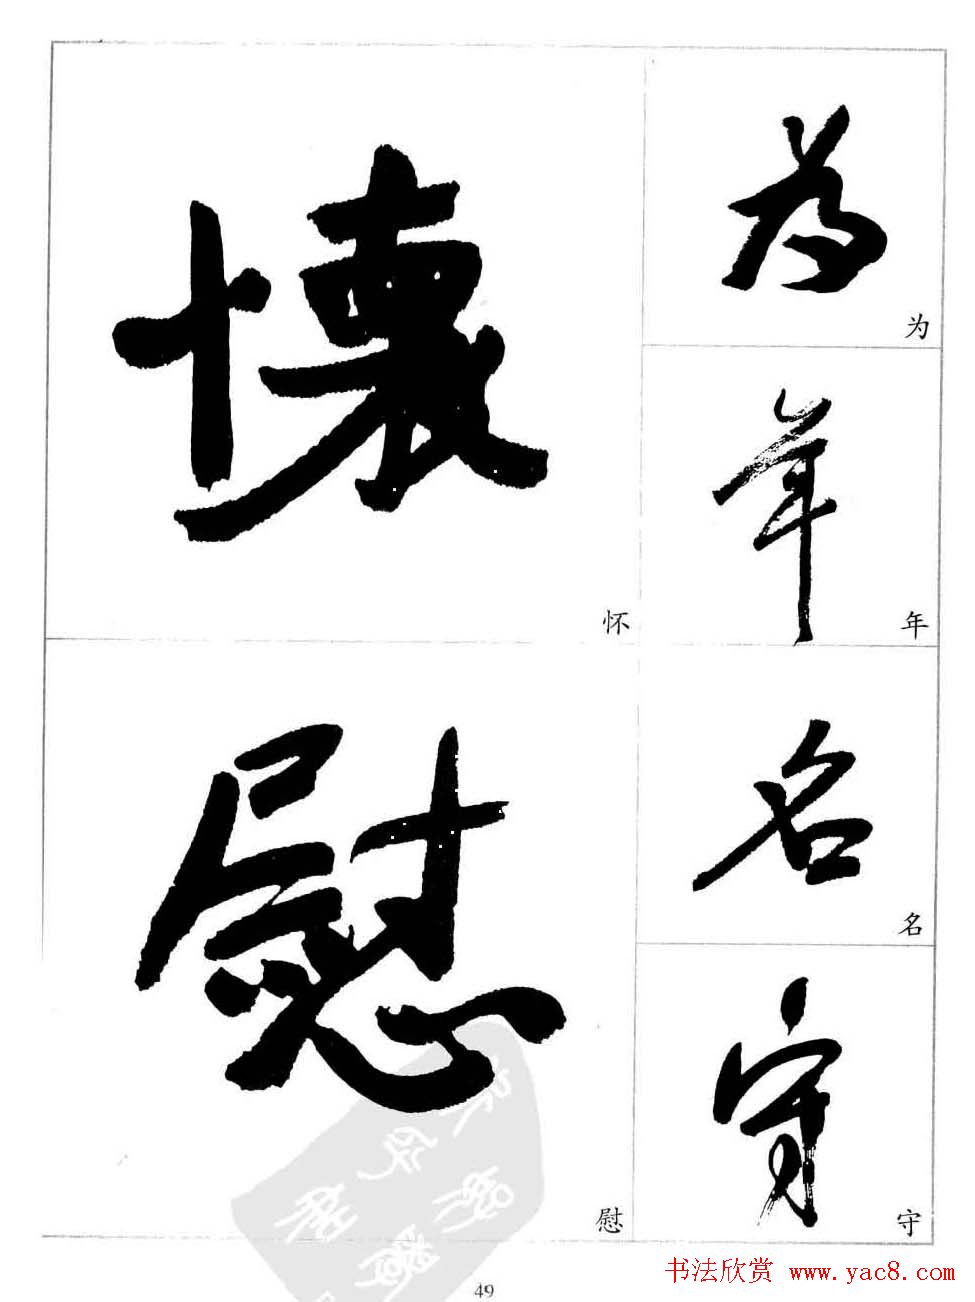 懷
怀
慰
慰
为
为
年
年
名
名
守
守
49
书法欣赏 www.yac8.com